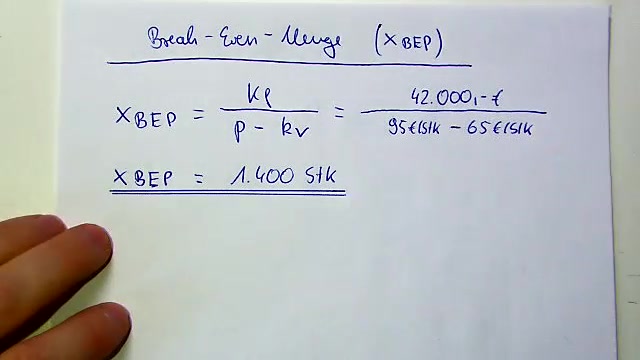 Break-Even-Menge (x BEP)
x BEP = Kf / p - kv = 42.000,-€ / 95€/Stk - 65€/Stk
x BEP = 1.400 Stk